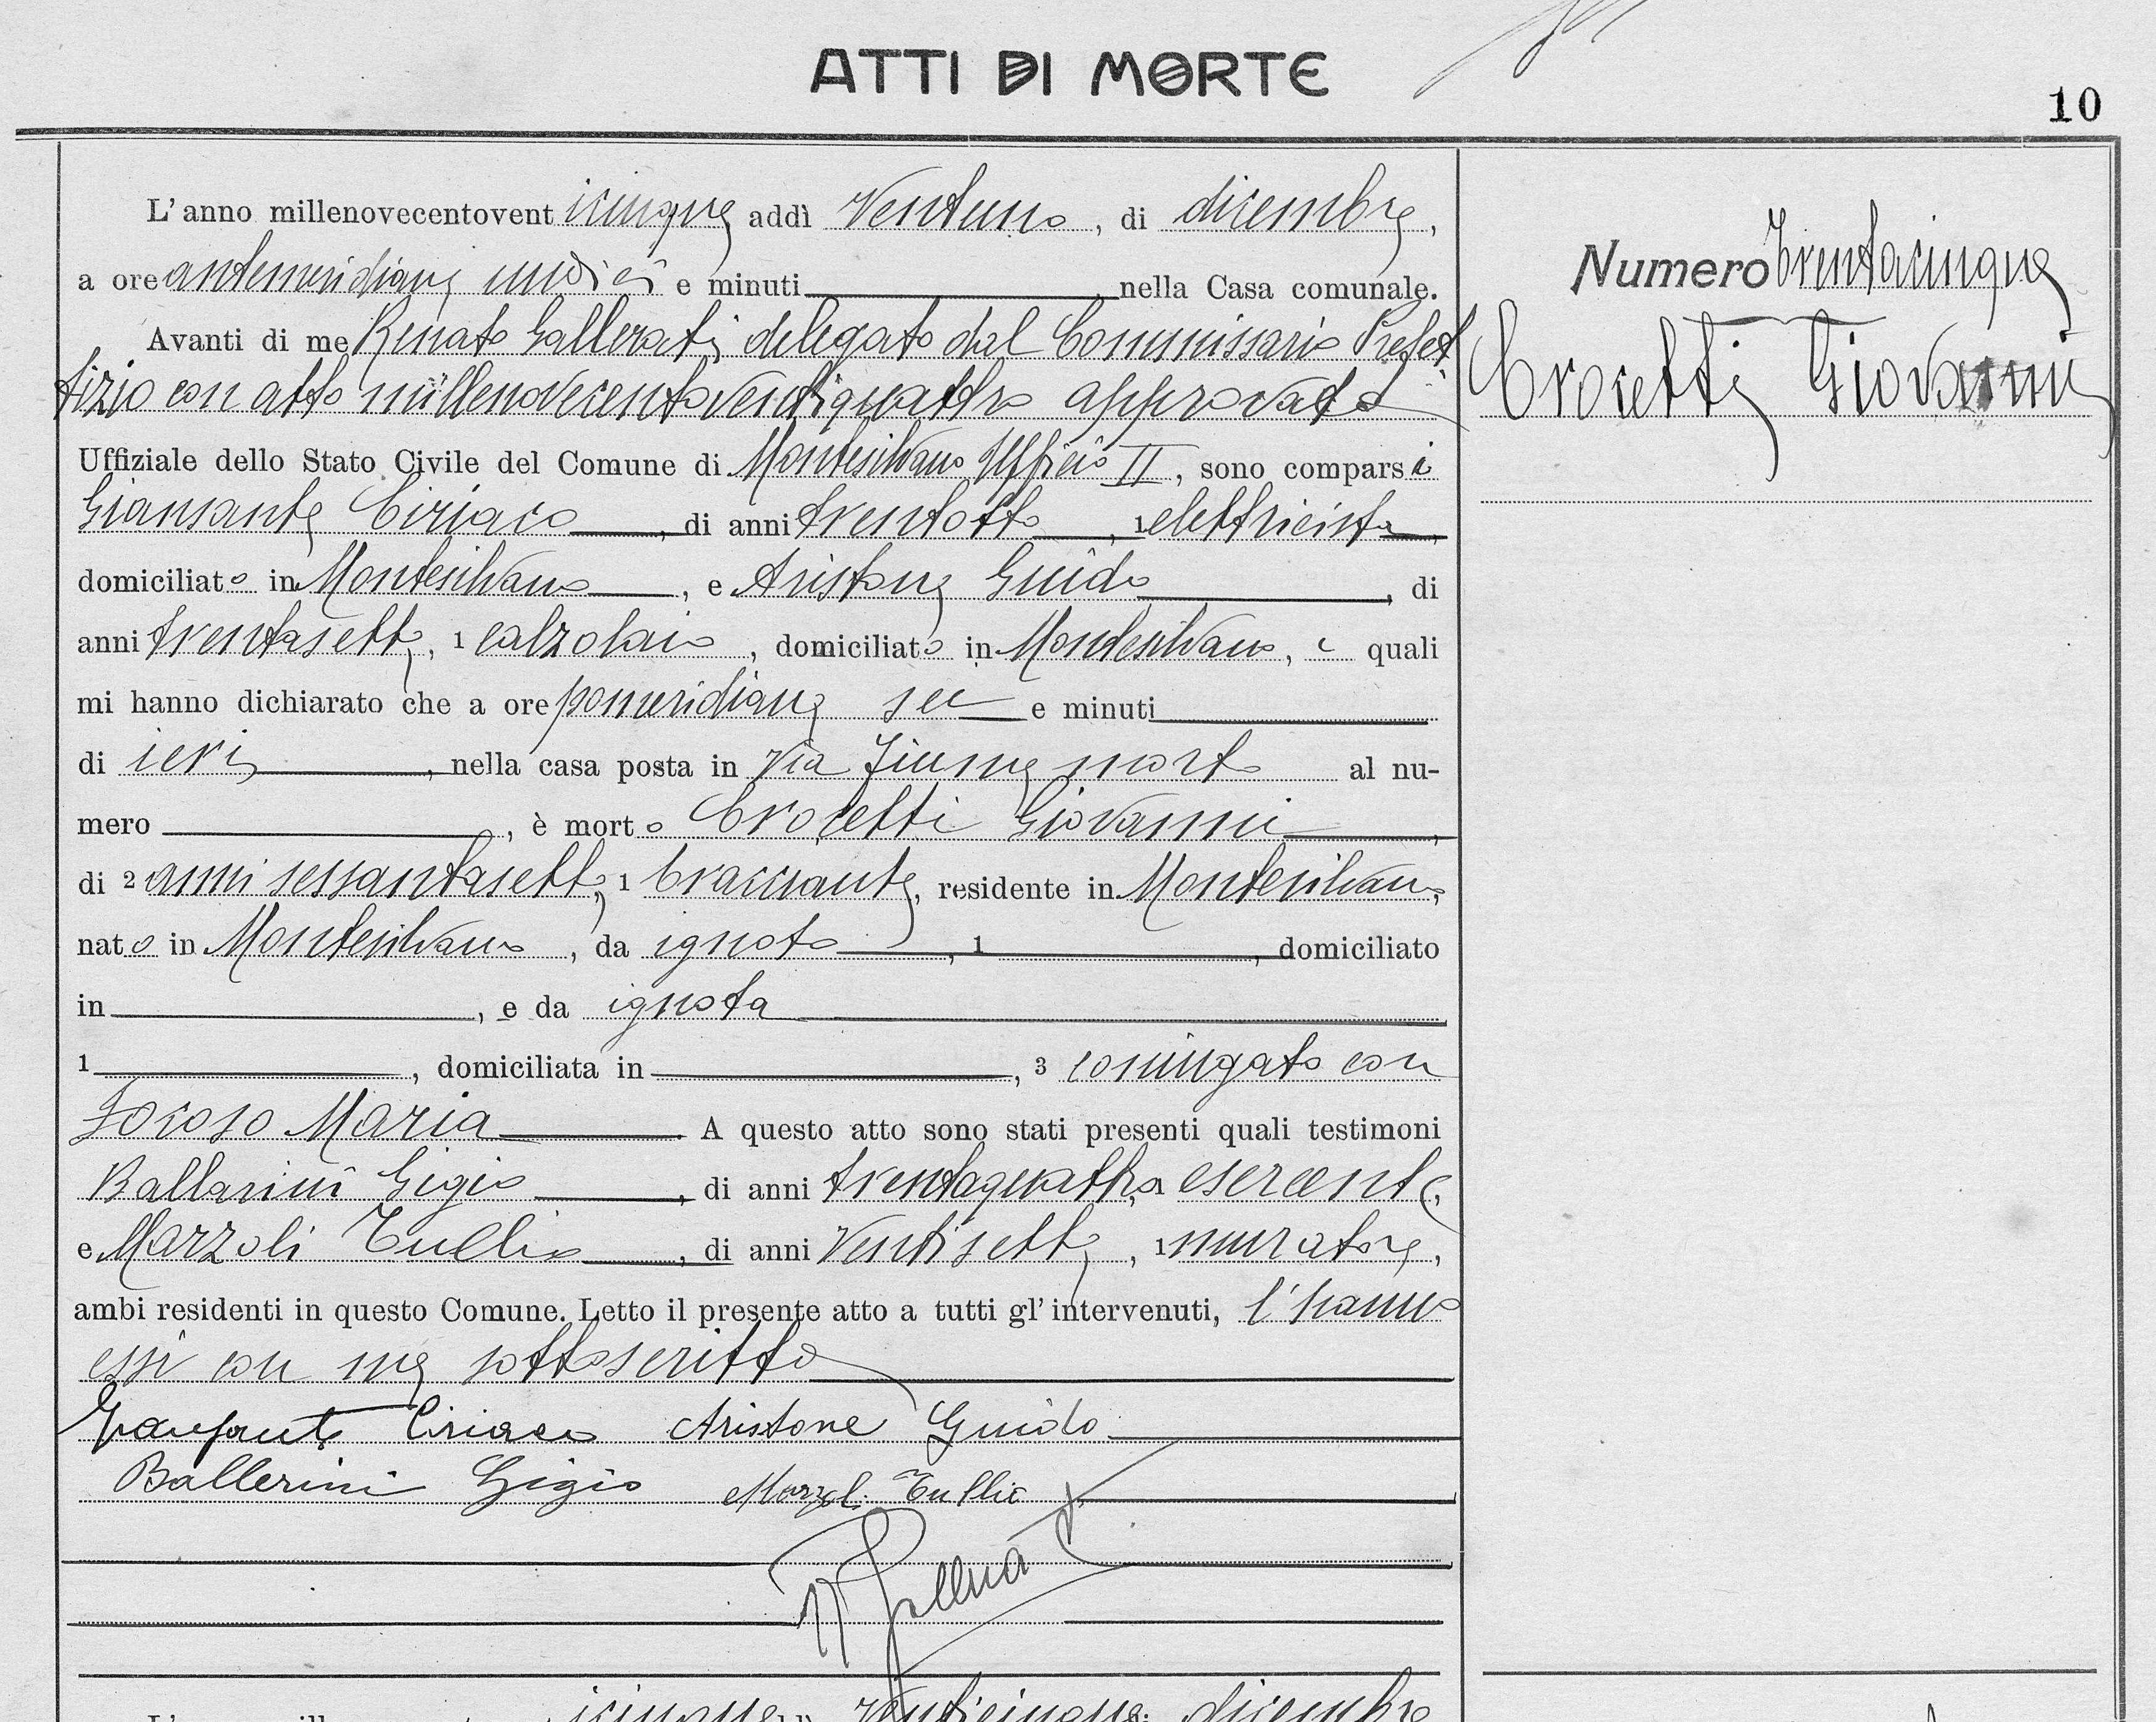 ATTI DI MORTE
10
L'anno millenovecentovent icinque addì Ventuno, di dicembre,
a ore antemeridiane undici e minuti nella Casa comunale.
Avanti di me Renato Gallerati delegato dal Commissario Prefet
tizio con atto millenovecentoventiquattro approvato
Uffiziale dello Stato Civile del Comune di Montesilvano Ufficio II, sono comparsi
Giansante Ciriaco, di anni trentotto, 1 elettricista,
domiciliato in Montesilvano, e Aristone Guido, di
anni trentasette, 1 calzolaio, domiciliato in Montesilvano, i quali
mi hanno dichiarato che a ore pomeridiane sei e minuti
di ieri, nella casa posta in Via Fiume morto al nu-
mero, è morto Crocetti Giovanni,
di 2 anni sessantasette, 1 bracciante, residente in Montesilvano,
nato in Montesilvano, da ignoto, 1, domiciliato
in, e da ignota
1, domiciliata in, 3 coniugato con
Focoso Maria A questo atto sono stati presenti quali testimoni
Ballarini Gigio, di anni trentaquattro, 1 esercente,
e Marzoli Tullio, di anni Ventisette, 1 muratore,
ambi residenti in questo Comune. Letto il presente atto a tutti gl'intervenuti, l'hanno
essi con me sottoscritto
Giansante Ciriaco Aristone Guido
Ballerini Gigio Marzoli Tullio
R Gallerati
Numero trentacinque
Crocetti Giovanni
icinque Venticinque dicembre